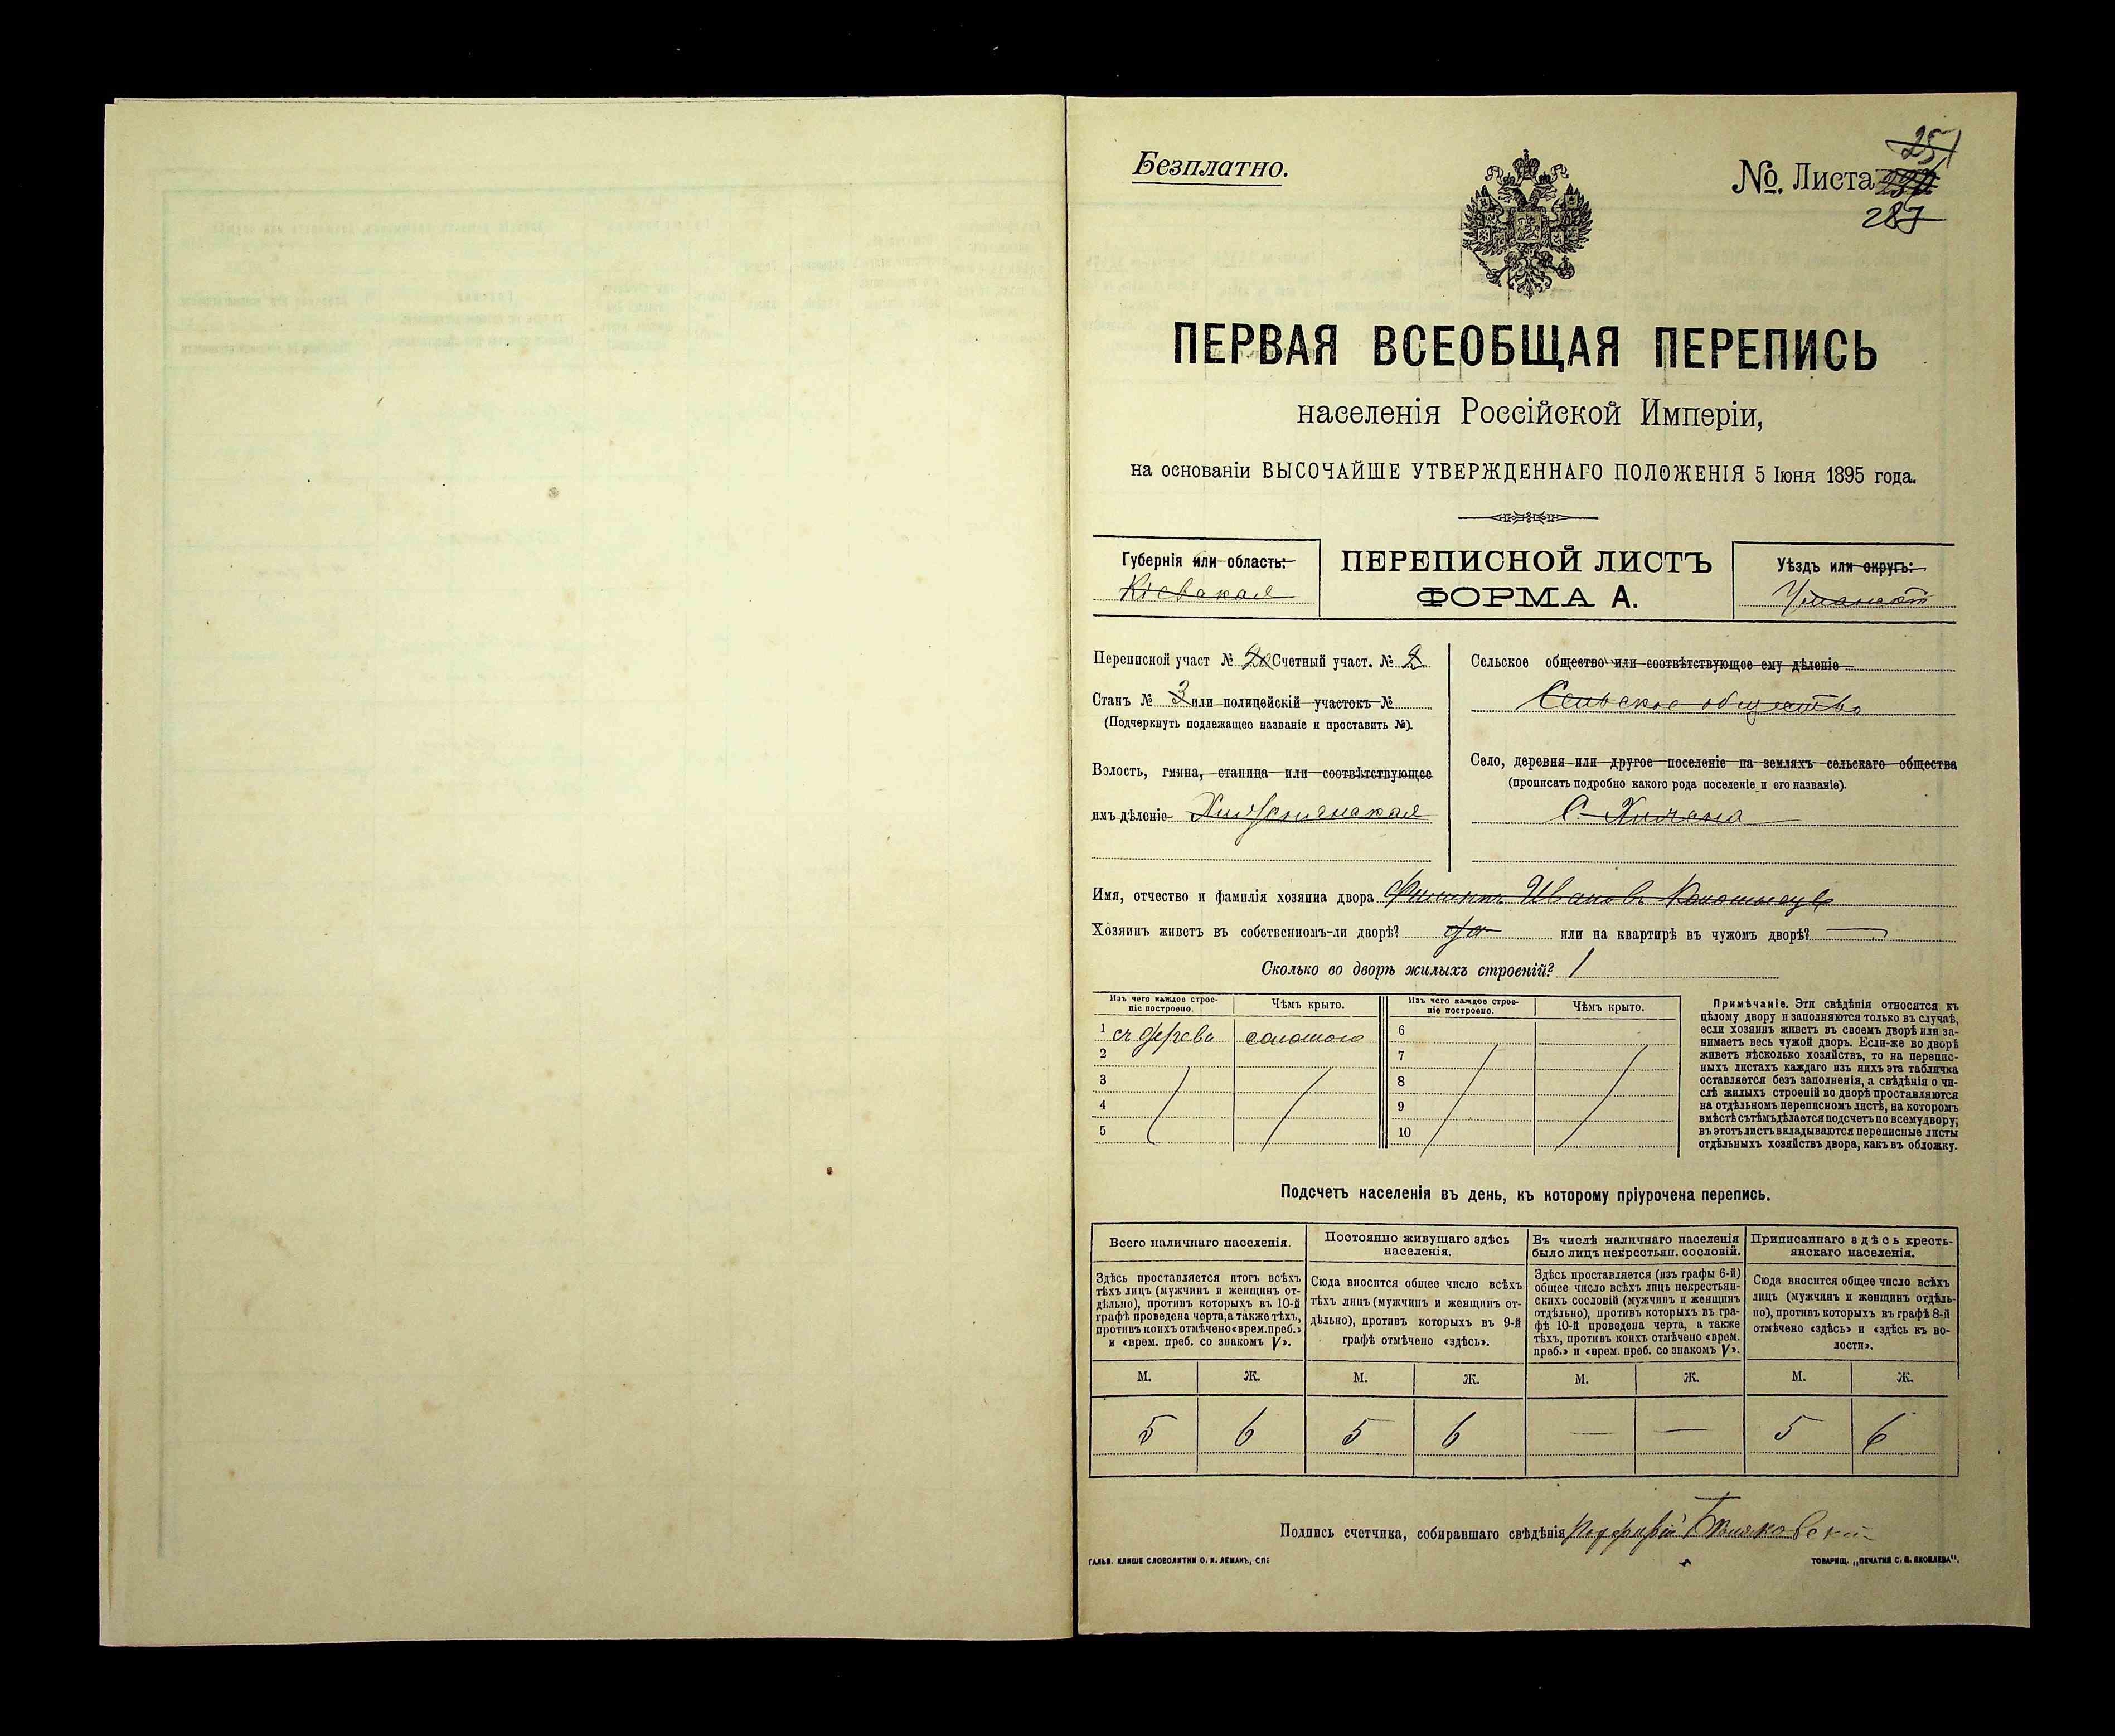 Безплатно.
№. Листа
251
287
ПЕРВАЯ ВСЕОБЩАЯ ПЕРЕПИСЬ
населенія Россійской Имперіи,
на основаніи ВЫСОЧАЙШЕ УТВЕРЖДЕННАГО ПОЛОЖЕНІЯ 5 Іюня 1895 года.
Губернія или область:
Кіевская
ПЕРЕПИСНОЙ ЛИСТЪ
ФОРМА А.
Уѣздъ или округъ:
Уманскій
Переписной участ № Счетный участ. № 2
Станъ № 3 или полицейскій участокъ №
(Подчеркнуть подлежащее названіе и проставить №).
Волость, гмина, станица или соотвѣтствующее
имъ дѣленіе
Сельское общество или соотвѣтствующее ему дѣленіе
Сельское общество
Село, деревня или другое поселеніе на земляхъ сельскаго общества
(прописать подробно какого рода поселеніе и его названіе).
С.
Имя, отчество и фамилія хозяина двора Ивановъ
Хозяинъ живетъ въ собственномъ-ли дворѣ? да или на квартирѣ въ чужомъ дворѣ? —
Сколько во дворѣ жилыхъ строеній? 1
Изъ чего каждое строе-
ніе построено.
Чѣмъ крыто.
Изъ чего каждое строе-
ніе построено.
Чѣмъ крыто.
1 съ дерева соломою 6
2 7
3 8
4 9
5 10
Примѣчаніе. Эти свѣдѣнія относятся къ
цѣлому двору и заполняются только въ случаѣ,
если хозяинъ живетъ въ своемъ дворѣ или за-
нимаетъ весь чужой дворъ. Если-же во дворѣ
живетъ нѣсколько хозяйствъ, то на перепис-
ныхъ листахъ каждаго изъ нихъ эта табличка
оставляется безъ заполненія, а свѣдѣнія о чи-
слѣ жилыхъ строеній во дворѣ проставляются
на отдѣльномъ переписномъ листѣ, на которомъ
вмѣстѣ съ тѣмъ дѣлается подсчетъ по всему двору;
въ этотъ листъ вкладываются переписные листы
отдѣльныхъ хозяйствъ двора, какъ въ обложку.
Подсчетъ населенія въ день, къ которому пріурочена перепись.
Всего наличнаго населенія.
Здѣсь проставляется итогъ всѣхъ
тѣхъ лицъ (мужчинъ и женщинъ от-
дѣльно), противъ которыхъ въ 10-й
графѣ проведена черта, а также тѣхъ,
противъ коихъ отмѣчено «врем. преб.»
и «врем. преб. со знакомъ V».
Постоянно живущаго здѣсь
населенія.
Сюда вносится общее число всѣхъ
тѣхъ лицъ (мужчинъ и женщинъ от-
дѣльно), противъ которыхъ въ 9-й
графѣ отмѣчено «здѣсь».
Въ числѣ наличнаго населенія
было лицъ некрестьян. сословій.
Здѣсь проставляется (изъ графы 6-й)
общее число всѣхъ лицъ некрестьян-
скихъ сословій (мужчинъ и женщинъ
отдѣльно), противъ которыхъ въ гра-
фѣ 10-й проведена черта, а также
тѣхъ, противъ коихъ отмѣчено «врем.
преб.» и «врем. преб. со знакомъ V».
Приписаннаго здѣсь кресть-
янскаго населенія.
Сюда вносится общее число всѣхъ
лицъ (мужчинъ и женщинъ отдѣль-
но), противъ которыхъ въ графѣ 8-й
отмѣчено «здѣсь» и «здѣсь къ во-
лости».
М. Ж. М. Ж. М. Ж. М. Ж.
5 6 5 6 — — 5 6
Подпись счетчика, собиравшаго свѣдѣнія
ГАЛЬВ. КЛИШЕ СЛОВОЛИТНИ О. И. ЛЕМАНЪ, СПБ
ТОВАРИЩ. „ПЕЧАТНЯ С. П. ЯКОВЛЕВА".